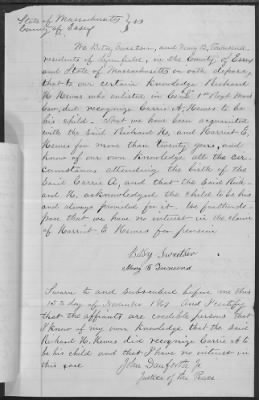 State of Massachusetts } ss
County of Essex
We Betsy and Mary B. Townsend,
residents of Lynnfield, in the County of Essex
and State of Massachusetts on oath depose,
that to our certain knowledge Richard
H. Hewes who enlisted in Co. 1st Regt Mass
Cav, did recognize Carrie A. Hewes to be
his child. That we have been acquainted
with the said Richard H., and Harriet E.
Hewes for more than twenty years, and
know of our own knowledge all the cir
cumstances attending the birth of the
said Carrie A, and that the said Rich
ard H. acknowledged the child to be his
and always provided for it. We further de
pose that we have no interest in the claim
of Harriet E Hewes for pension
Betsy
Mary B Townsend
Sworn to and subscribed before me this
15th day of November 1861 And I certify
that the affiants are credible persons that
I know of my own knowledge that the said
Richard H. Hewes did recognize Carrie A to
be his child and that I have no interest in
this case
John Danforth Jr
Justice of the Peace